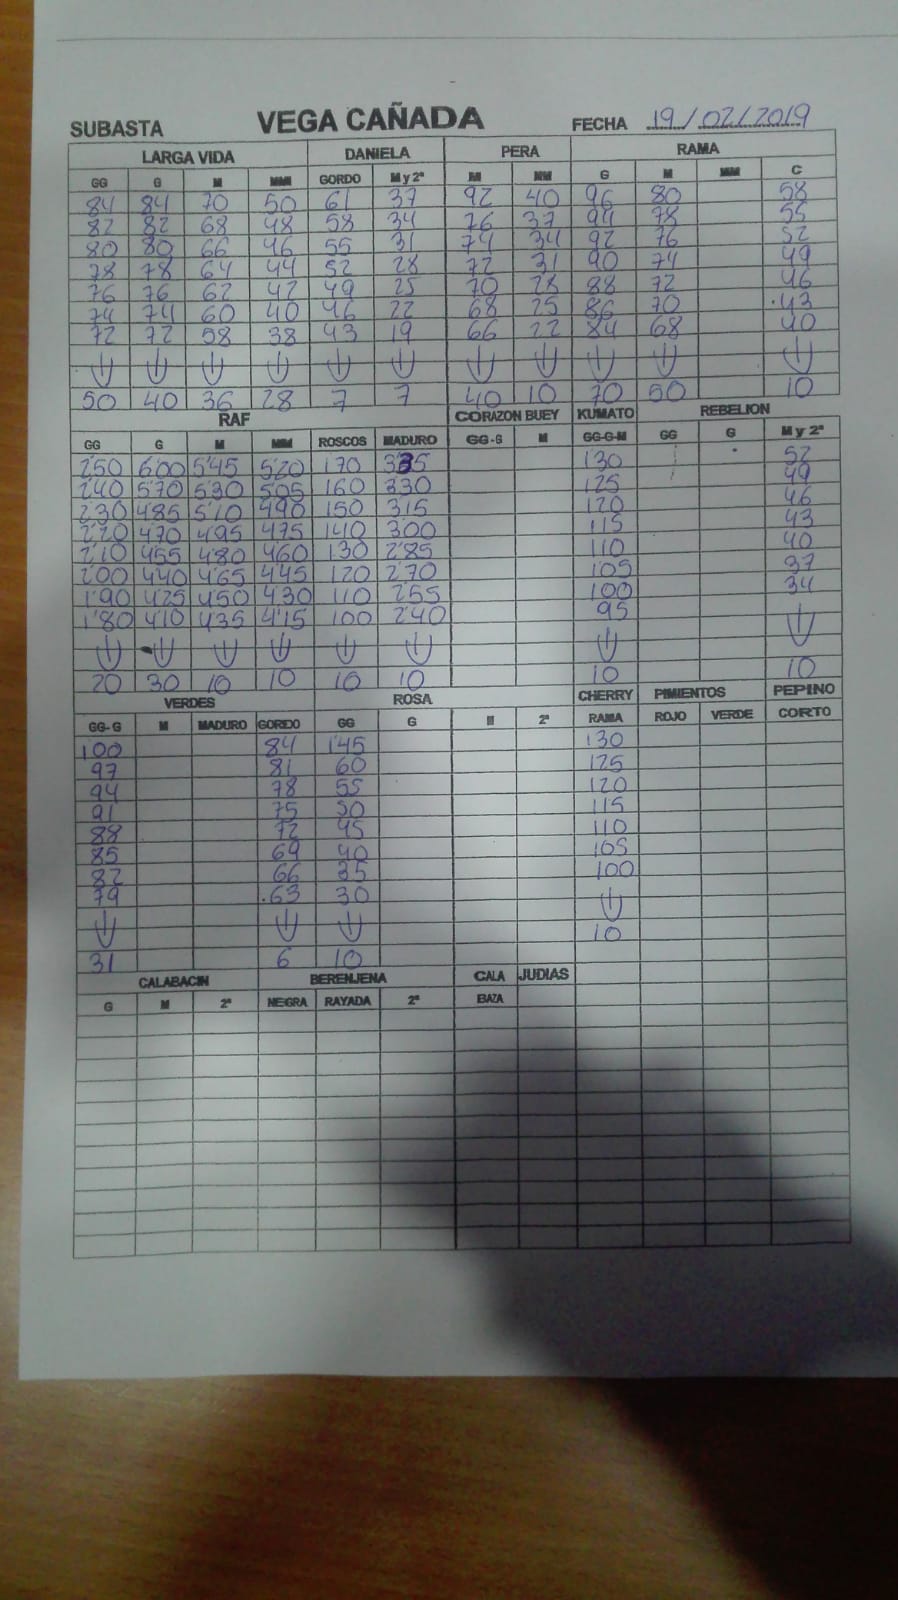 SUBASTA VEGA CAÑADA FECHA 19/02/2019
LARGA VIDA DANIELA PERA RAMA
GG G M MM GORDO M y 2ª M MM G M MM C
84 84 70 50 61 37 92 40 96 80 58
82 82 68 48 58 34 76 37 94 78 55
80 80 66 46 55 31 74 34 92 76 52
78 78 64 44 52 28 72 31 90 74 49
76 76 62 42 49 25 70 28 88 72 46
74 74 60 40 46 22 68 25 86 70 43
72 72 58 38 43 19 66 22 84 68 40
50 40 36 28 7 7 40 10 70 50 10
RAF CORAZON BUEY KUMATO REBELION
GG G M MM ROSCOS MADURO GG-G M GG-G-M GG G M y 2ª
2'50 6'00 5'45 5'20 1'70 3'35 130 52
2'40 5'70 5'30 505 160 3'30 125 49
2'30 485 5'10 490 150 3'15 120 46
2'20 470 495 475 140 3'00 115 43
2'10 455 480 460 130 2'85 110 40
2'00 440 465 445 120 2'70 105 37
1'90 425 450 430 110 2'55 100 34
1'80 4'10 435 4'15 100 2'40 95
20 30 10 10 10 10 10 10
VERDES ROSA CHERRY PIMIENTOS PEPINO
GG-G M MADURO GORDO GG G M 2ª RAMA ROJO VERDE CORTO
100 84 145 130
97 81 60 125
94 78 55 120
91 75 50 115
88 72 45 110
85 69 40 105
82 66 35 100
79 63 30
31 6 10 10
CALABACIN BERENJENA CALA JUDIAS
G M 2ª NEGRA RAYADA 2ª BAZA